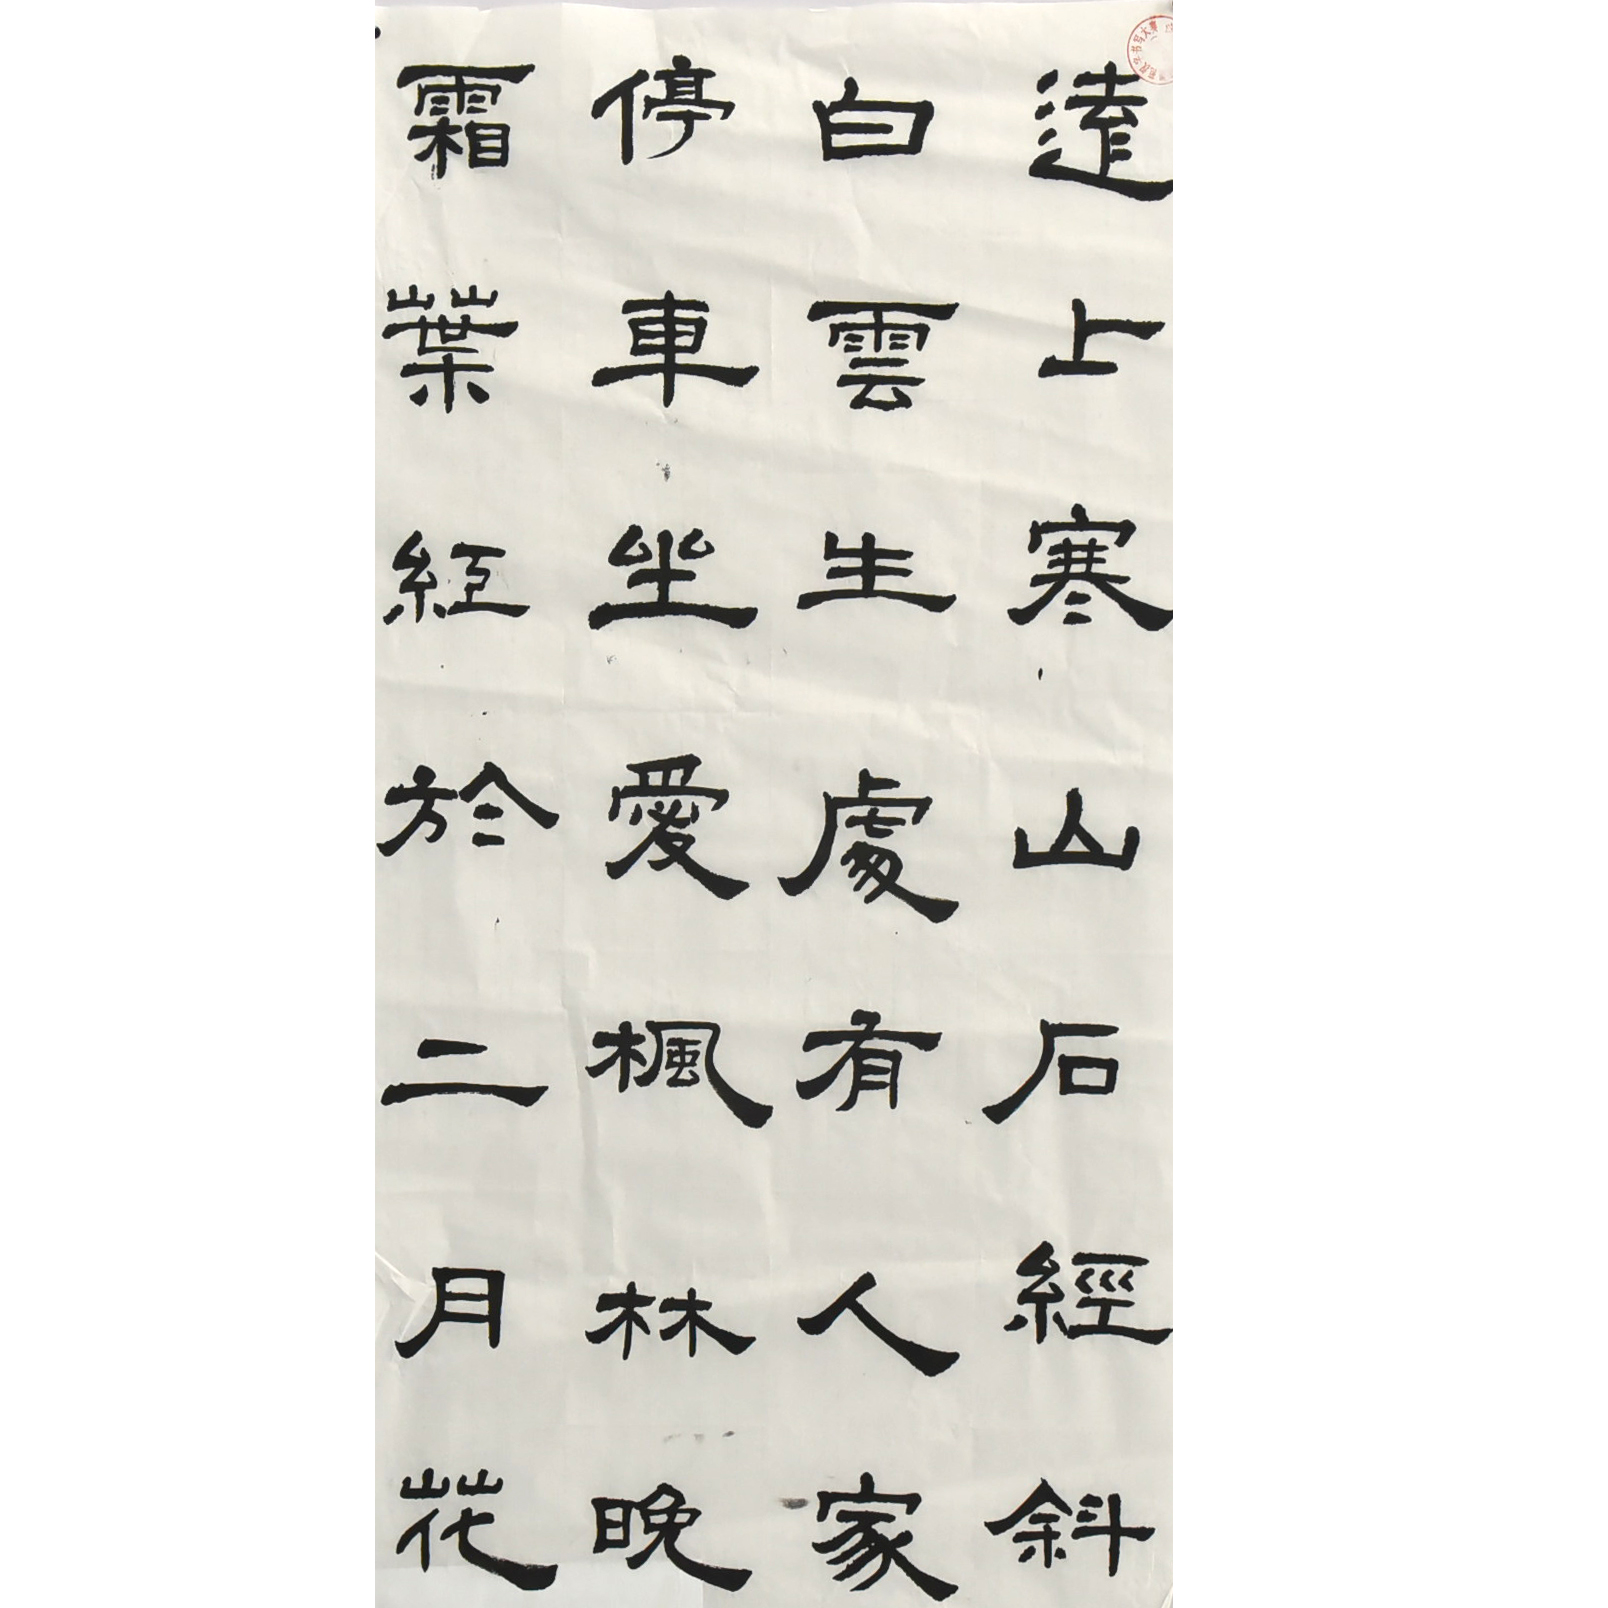 遠上寒山石經斜
白雲生處有人家
停車坐愛楓林晚
霜葉紅於二月花